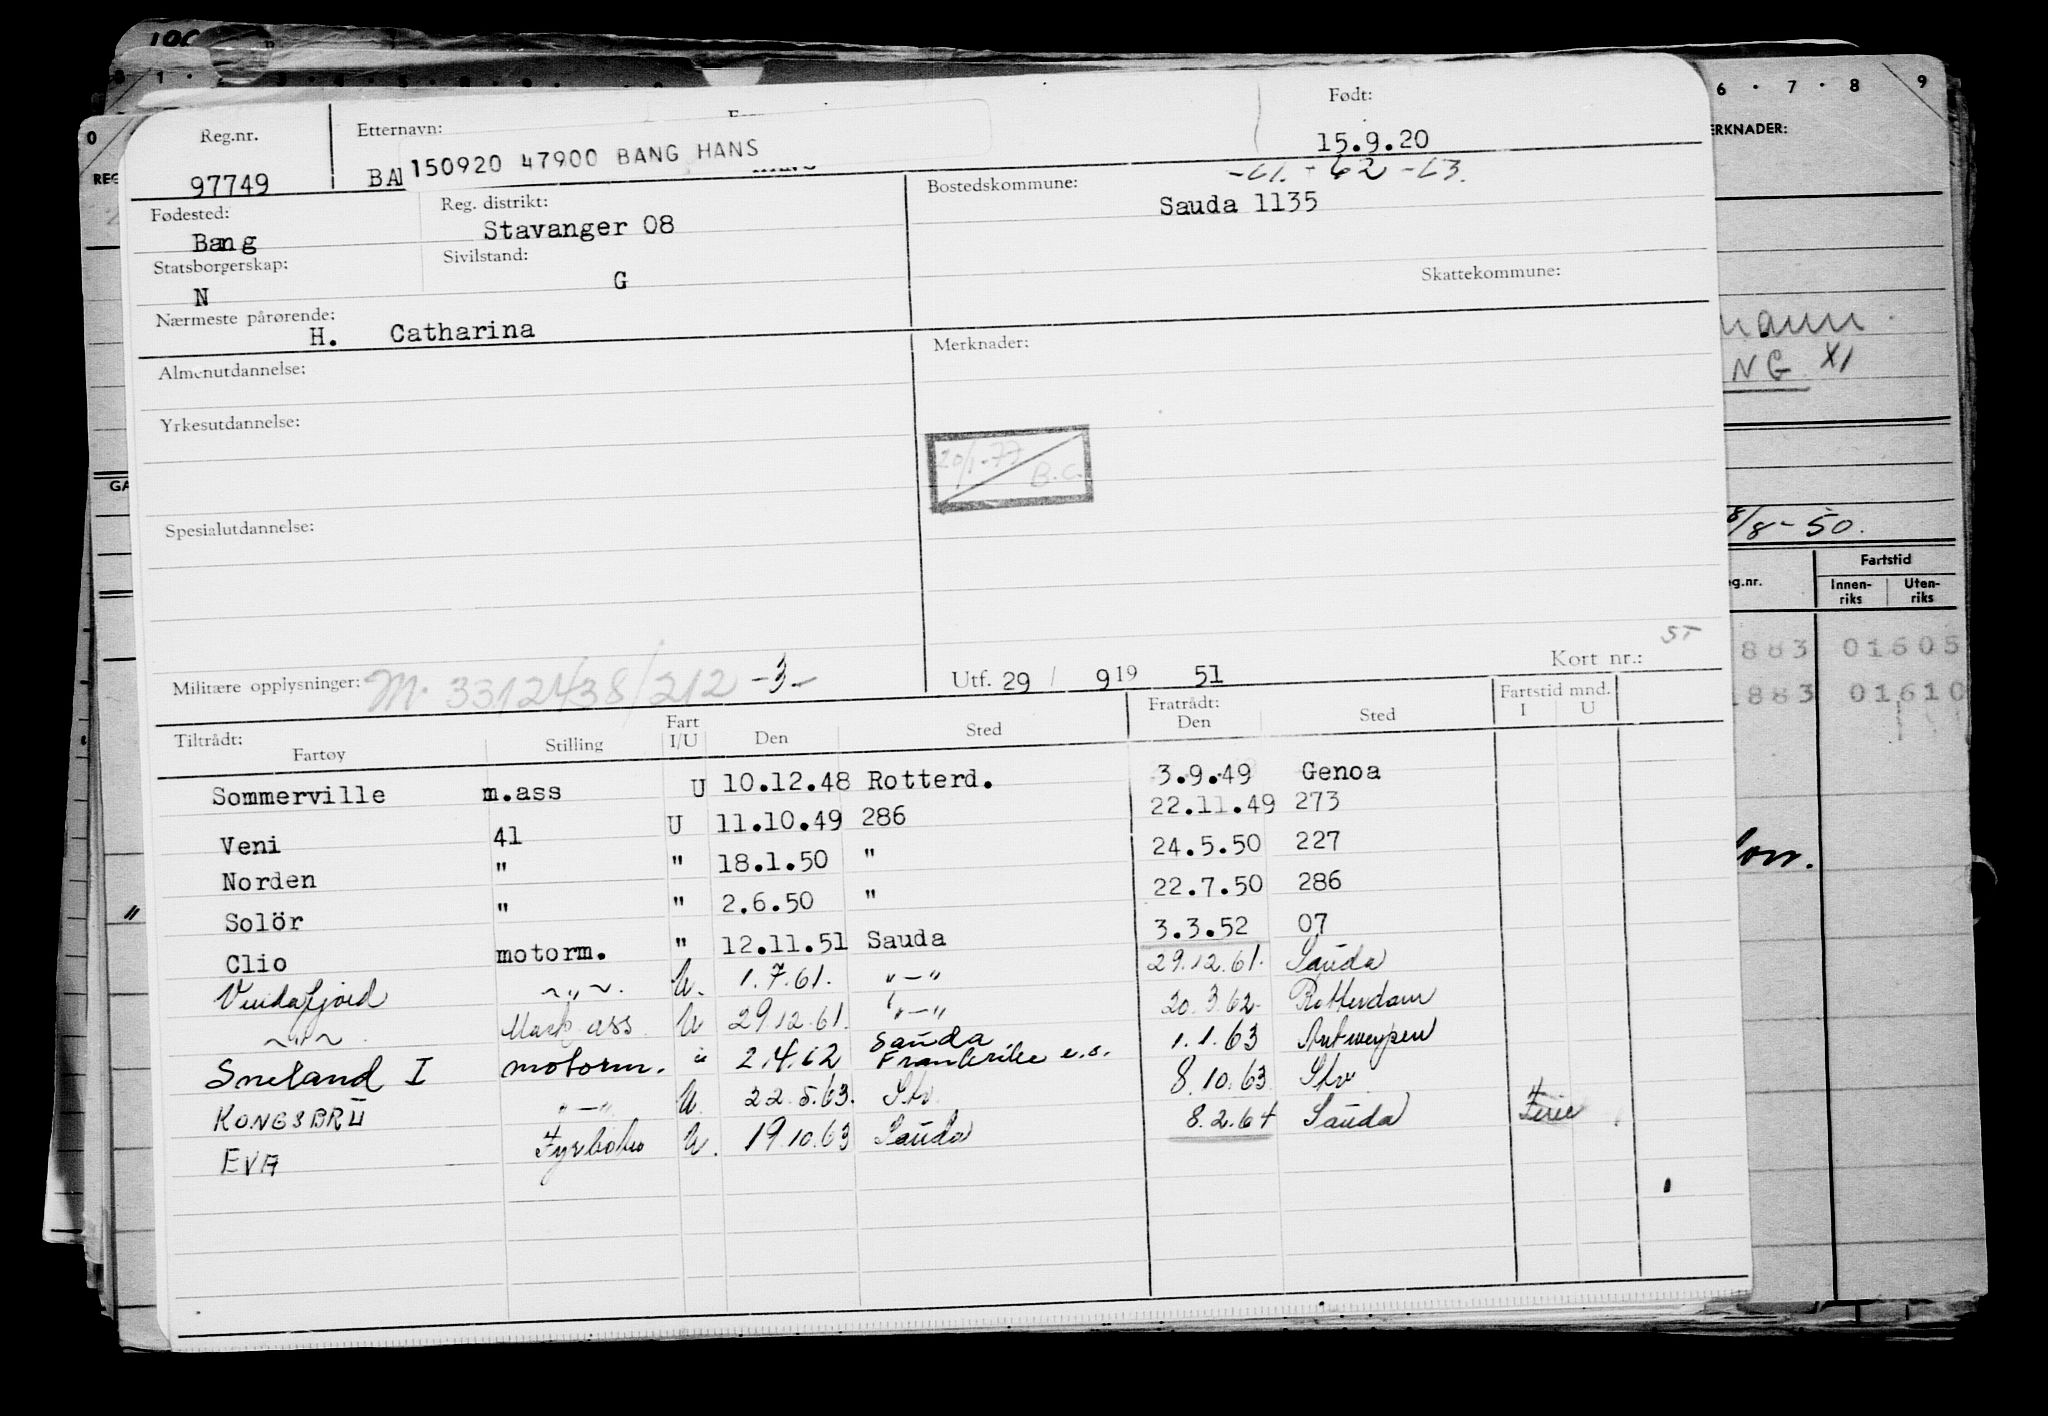 Reg.nr. Etternavn: Født:
97749 BA 150920 47900 BANG HANS 15.9.20
-61. - 62 - 63.
Fødested: Reg. distrikt: Bostedskommune:
Bang Stavanger 08 Sauda 1135
Statsborgerskap: Sivilstand: Skattekommune:
N G
Nærmeste pårørende: H. Catharina
Almenutdannelse: Merknader:
Yrkesutdannelse:
20/1-77 B.C.
Spesialutdannelse:
ST
Militære opplysninger: M. 3312438/212 -3- Utf. 29 / 9 19 51 Kort nr.:
Tiltrådt: Fratrådt: Fartstid mnd.
Fartøy Stilling Fart I/U Den Sted Den Sted I U
Sommerville m.ass U 10.12.48 Rotterd. 3.9.49 Genoa
Veni 41 U 11.10.49 286 22.11.49 273
Norden " " 18.1.50 " 24.5.50 227
Solör " " 2.6.50 " 22.7.50 286
Clio motorm. " 12.11.51 Sauda 3.3.52 07
Vindafjord ~„~. U. 1.7.61. „—„ 29.12.61. Sauda
~„~ Mask ass U 29.12.61. „—„ 20.3.62 Rotterdam
Sneland I motorm. " 2.4.62 Sauda Frankrike e.o. 1.1.63 Antwerpen
KONGSBRU „—„ U. 22.5.63. Stv 8.10.63 Stv
EVA Fyrbøter U. 19.10.63 Sauda 8.2.64 Sauda Ferie
0 1
6 · 7 · 8 9
ERKNADER:
REG
mann.
NG XI
8/8-50.
GA
Fartstid
g.nr. Innen-riks Uten-riks
883 01605
1883 01610
"